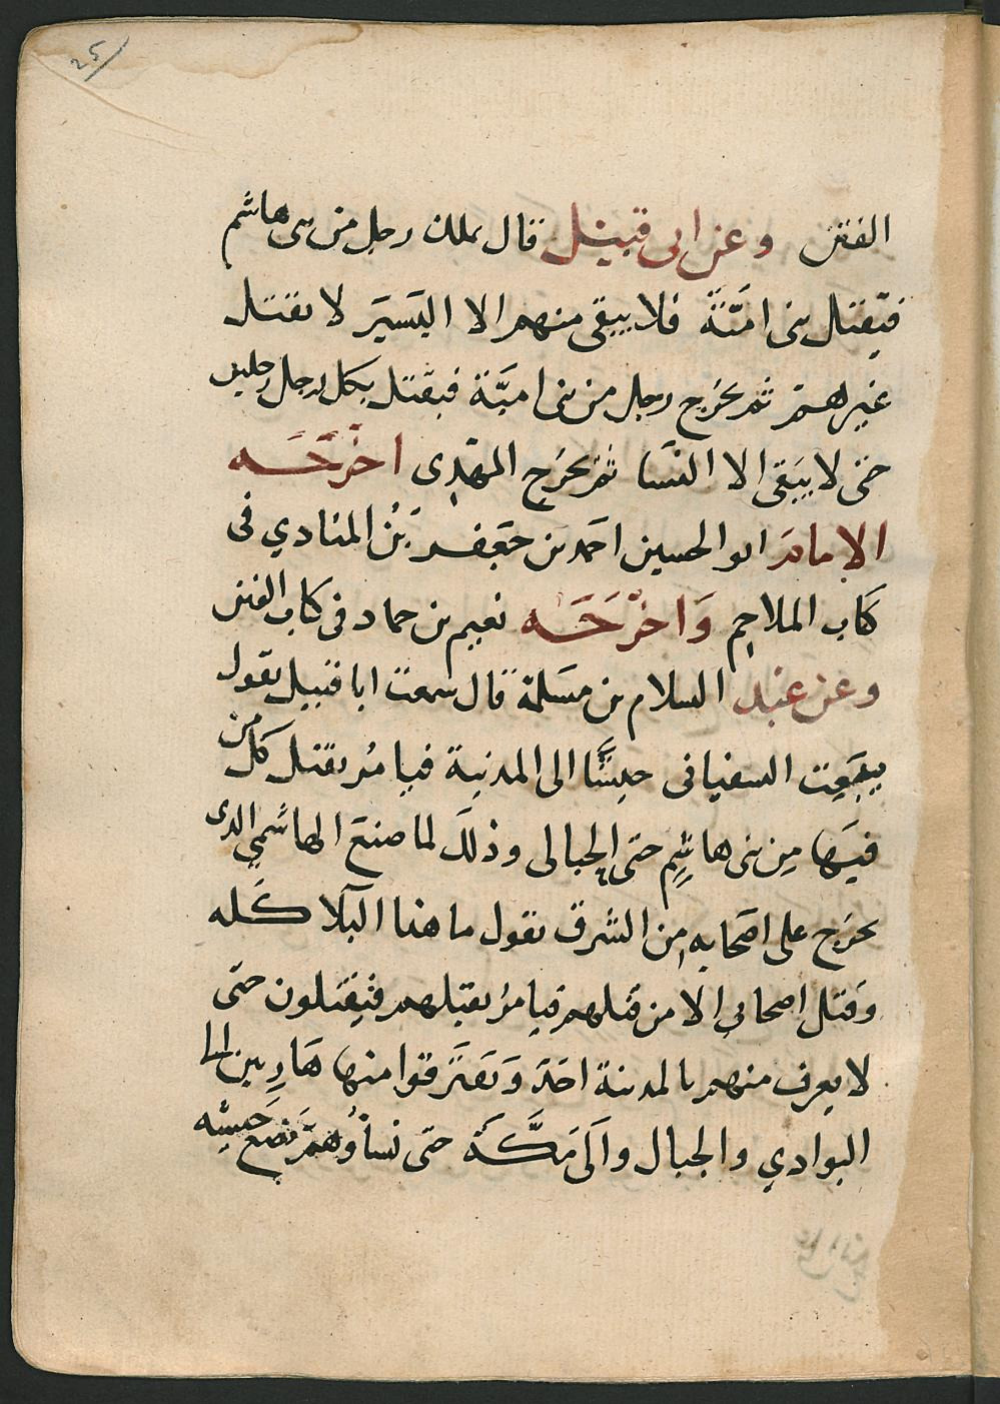 25
الفتن وعن ابى قبيل قال يملك رجل من بنى هاشم
فيقتل بنى امَيَّة فلا يبقى منهم الا اليَسيَر لا يقتل
غيرهم ثم يخرج رجل من بنى اميَّة فيقتل بكل رجل رجلين
حتى لا يبَقى الا النسَا ثم يخرج المهَدِى اخْرَجَه
الإمامَ ابو الحسين احمد بن جَعفر بَنُ المنادي فى
كَاب الملاحِم وَاخْرَجَه نعيم بن حماد فى كاب الفتن
وعن عبد السلام بن مسَلمة قال سمعت ابا قبيل يقول
يبعَث السفيانى جيشًا الى المدنية فيامُر بقتل كل من
فيَها مِن بنى هاشِم حتى الحِبالى وذلَك لما صنعَ الهاشَمي الذى
يخرَج على اصَحابه من الشرق يقول ما هذا البَلا كَله
وَقتل اصحابى الا من قبَلهم فيامرُ بقتلهم فيُقتَلون حتىَ
لا يعرف منهم بالمدينة احَدَ وَتفَتَرقوا منها هَارِبين الى
البوادي والجبال والَى مَكَّةَ حتى نساؤُهمَ يضَع جيشِه